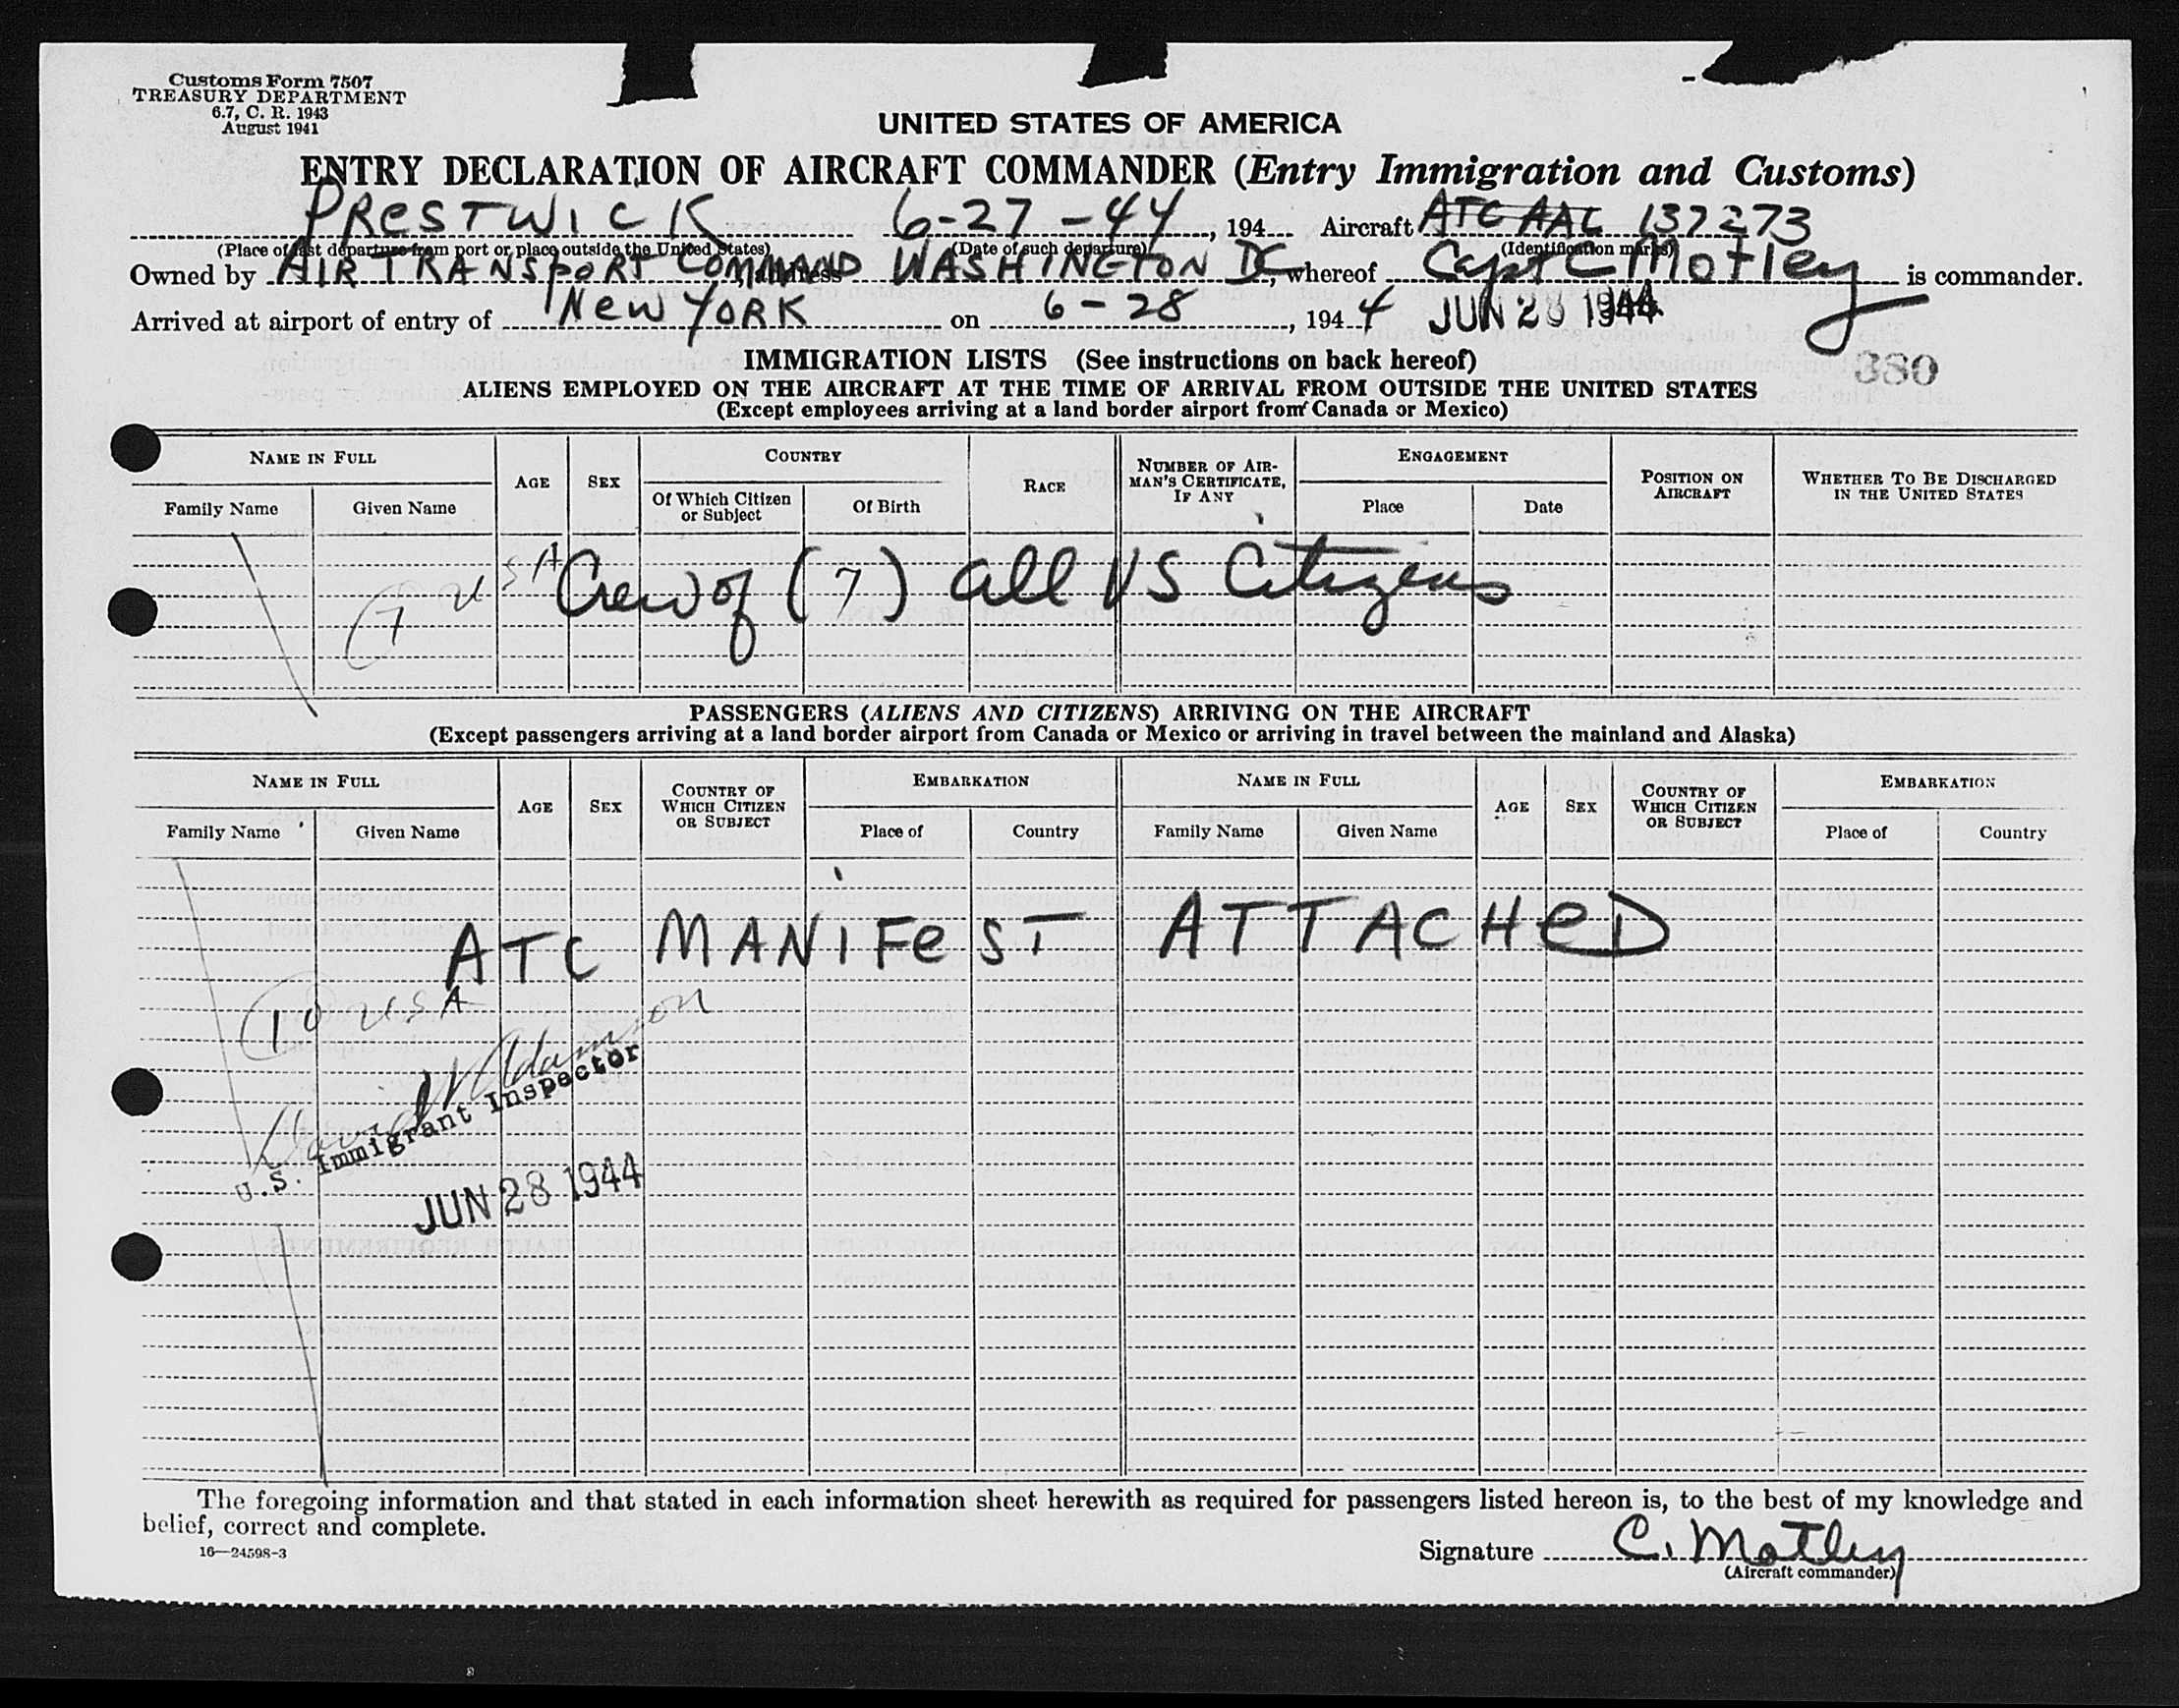 Customs Form 7507
TREASURY DEPARTMENT
6.7, C. R. 1943
August 1941
UNITED STATES OF AMERICA
ENTRY DECLARATION OF AIRCRAFT COMMANDER (Entry Immigration and Customs)
PRESTWICK 6-27-44, 194 Aircraft ATC AAC 137273
(Place of last departure from port or place outside the United States) (Date of such departure) (Identification marks)
Owned by AIR TRANSPORT COMMAND, address WASHINGTON DC, whereof Capt C Motley is commander.
Arrived at airport of entry of NEW YORK on 6-28, 1944 JUN 28 1944
380
IMMIGRATION LISTS (See instructions on back hereof)
ALIENS EMPLOYED ON THE AIRCRAFT AT THE TIME OF ARRIVAL FROM OUTSIDE THE UNITED STATES
(Except employees arriving at a land border airport from Canada or Mexico)
NAME IN FULL AGE SEX COUNTRY RACE NUMBER OF AIRMAN'S CERTIFICATE, IF ANY ENGAGEMENT POSITION ON AIRCRAFT WHETHER TO BE DISCHARGED IN THE UNITED STATES
Family Name Given Name Of Which Citizen or Subject Of Birth Place Date
7 USA Crew of (7) all US Citizens
PASSENGERS (ALIENS AND CITIZENS) ARRIVING ON THE AIRCRAFT
(Except passengers arriving at a land border airport from Canada or Mexico or arriving in travel between the mainland and Alaska)
NAME IN FULL AGE SEX COUNTRY OF WHICH CITIZEN OR SUBJECT EMBARKATION NAME IN FULL AGE SEX COUNTRY OF WHICH CITIZEN OR SUBJECT EMBARKATION
Family Name Given Name Place of Country Family Name Given Name Place of Country
ATC MANIFEST ATTACHED
10 USA
David Adamson
U.S. Immigrant Inspector
JUN 28 1944
The foregoing information and that stated in each information sheet herewith as required for passengers listed hereon is, to the best of my knowledge and
belief, correct and complete.
16—24598-3
Signature C. Motley
(Aircraft commander)